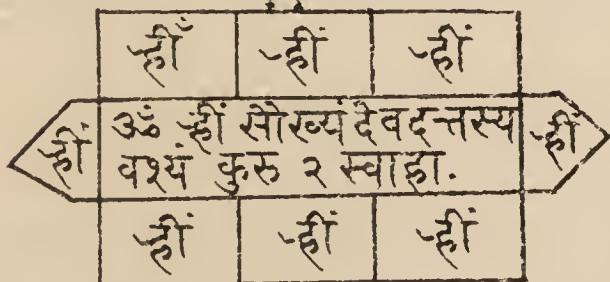 ह्रीँ ह्रीं ह्रीं
ह्रीं
ॐ ह्रीं सौख्यं देवदत्तस्य
वश्यं कुरु २ स्वाहा.
ह्रीं
ह्रीं ह्रीं ह्रीं